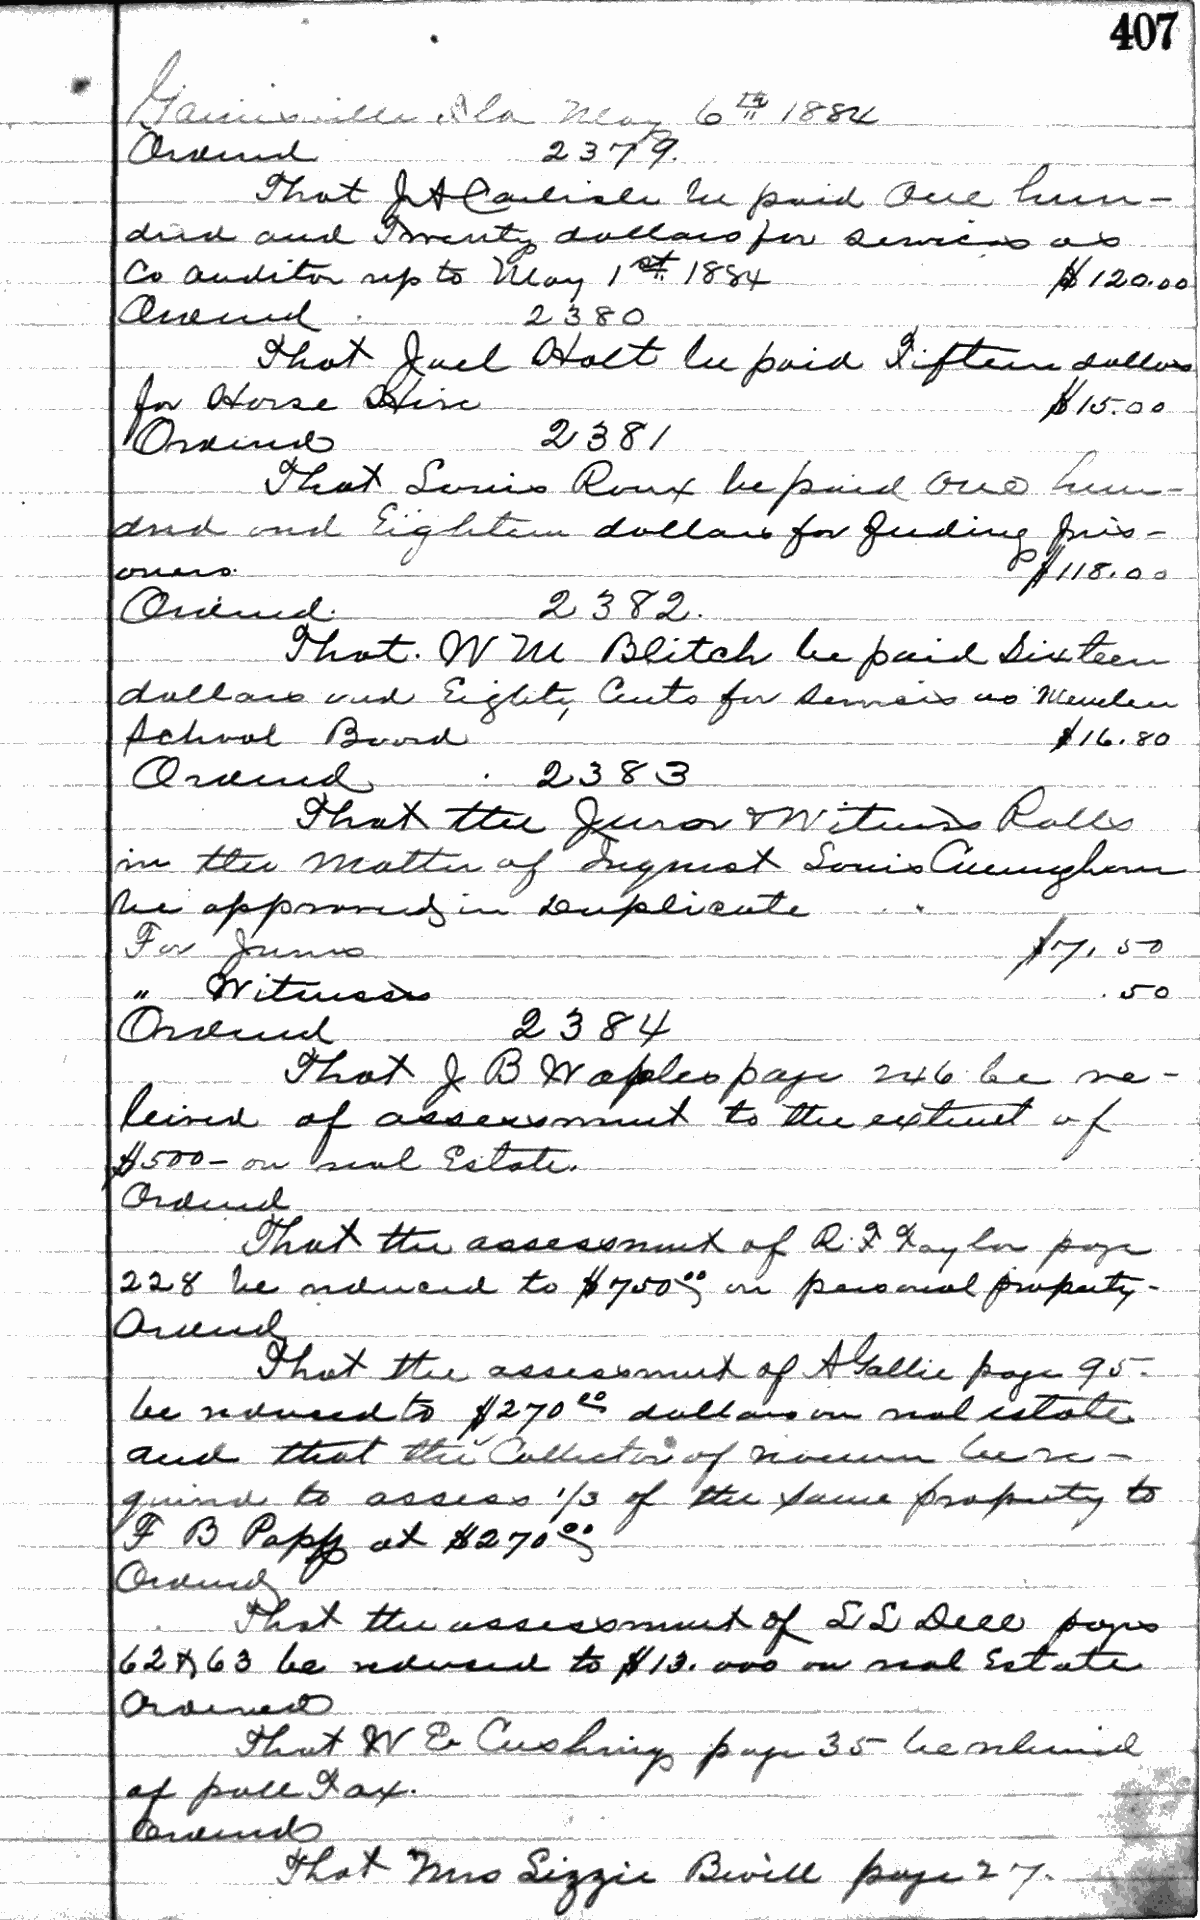 407
Gainesville Fla May 6th 1884
Ordered 2379.
That J A Carlisle be paid One hun-
dred and Twenty dollars for services as
Co auditor up to May 1st 1884 $120.00
Ordered. 2380
That Joel Holt be paid Fifteen dollars
for Horse Hire $15.00
Ordered 2381
That Louis Roux be paid One hun-
dred and Eighteen dollars for feeding pris-
oners. $118.00
Ordered. 2382.
That. W M Blitch be paid Sixteen
dollars and Eighty Cents for services as Member
School Board $16.80
Ordered 2383
That the Juror & Witness Rolls
in the Matter of Inquest Louis Cunningham
be approved in Duplicate
For Jurors $7.50
" Witnesses .50
Ordered 2384
That J B Waples page 246 be re-
leived of assessment to the extent of
$500- on real Estate.
Ordered
That the assessment of R. F Taylor page
228 be reduced to $750.00 on personal property-
Ordered
That the assessment of A Gallie page 95-
be reduced to $270.00 dollars on real estate
and that the Collector of revenue be re-
quired to assess 1/3 of the same property to
F B Papy at $270.00
Ordered
That the assessment of L L Dell pages
62 & 63 be reduced to $13.000 on real Estate
Ordered
That W E Cushing page 35 be releived
of poll Tax.
Ordered
That Mrs Lizzie Bevill page 27.